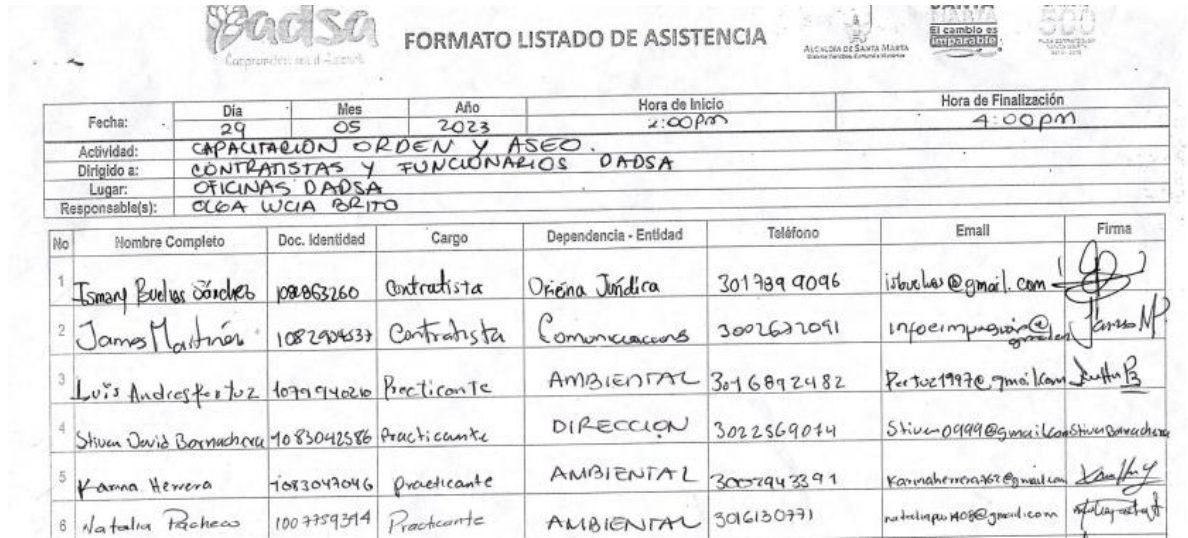 dadsa
FORMATO LISTADO DE ASISTENCIA
ALCALDÍA DE SANTA MARTA
SANTA MARTA
El cambio es
imparable
500
Fecha: Día Mes Año Hora de Inicio Hora de Finalización
29 05 2023 2:00pm 4:00pm
Actividad: CAPACITACION ORDEN Y ASEO.
Dirigido a: CONTRATISTAS Y FUNCIONARIOS DADSA
Lugar: OFICINAS DADSA
Responsable(s): OLGA LUCIA BRITO
No Nombre Completo Doc. Identidad Cargo Dependencia - Entidad Teléfono Email Firma
1 Ismany Sánchez Contratista Jurídica 3017899096 @gmail.com
2 James Martínez Contratista 3002622091 James M
3 Luis Andres Pertuz 1079940210 Practicante AMBIENTAL 3016892482 Pertuz1997@gmail.com
4 Stiven David Bornachera 1083042586 Practicante DIRECCION 3022569074 Stiven0999@gmail.com Stiven Bornachera
5 Karina Herrera 1083047046 practicante AMBIENTAL 3002943391 Karinaherrera762@gmail.com
6 Natalia Pacheco 1007759314 Practicante AMBIENTAL 3016130771